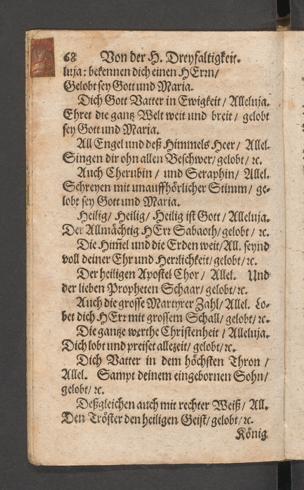 68 Von der H. Dreyfaltigkeit.
luja: bekennen dich einen HErrn/
Gelobt sey Gott und Maria.
Dich Gott Vatter in Ewigkeit/ Alleluja.
Ehret die gantz Welt weit und breit/ gelobt
sey Gott und Maria.
All Engel und deß Himmels Heer/ Allel.
Singen dir ohn allen Beschwer/ gelobt/ ꝛc.
Auch Cherubin/ und Seraphin/ Allel.
Schreyen mit unauffhörlicher Stimm/ ge-
lobt sey Gott und Maria.
Heilig/ Heilig/ Heilig ist Gott/ Alleluja.
Der Allmächtig HErr Sabaoth/ gelobt/ ꝛc.
Die Him̃el und die Erden weit/ All. seynd
voll deiner Ehr und Herrlichkeit/ gelobt/ ꝛc.
Der heiligen Apostel Chor/ Allel. Und
der lieben Propheten Schaar/ gelobt/ ꝛc.
Auch die grosse Martyrer Zahl/ Allel. Lo-
bet dich HErr mit grossem Schall/ gelobt/ ꝛc.
Die gantze werthe Christenheit/ Alleluja.
Dich lobt und preiset allezeit/ gelobt/ ꝛc.
Dich Vatter in dem höchsten Thron/
Allel. Sampt deinem eingebornen Sohn/
gelobt/ ꝛc.
Deßgleichen auch mit rechter Weiß/ All.
Den Tröster den heiligen Geist/ gelobt/ ꝛc.
König